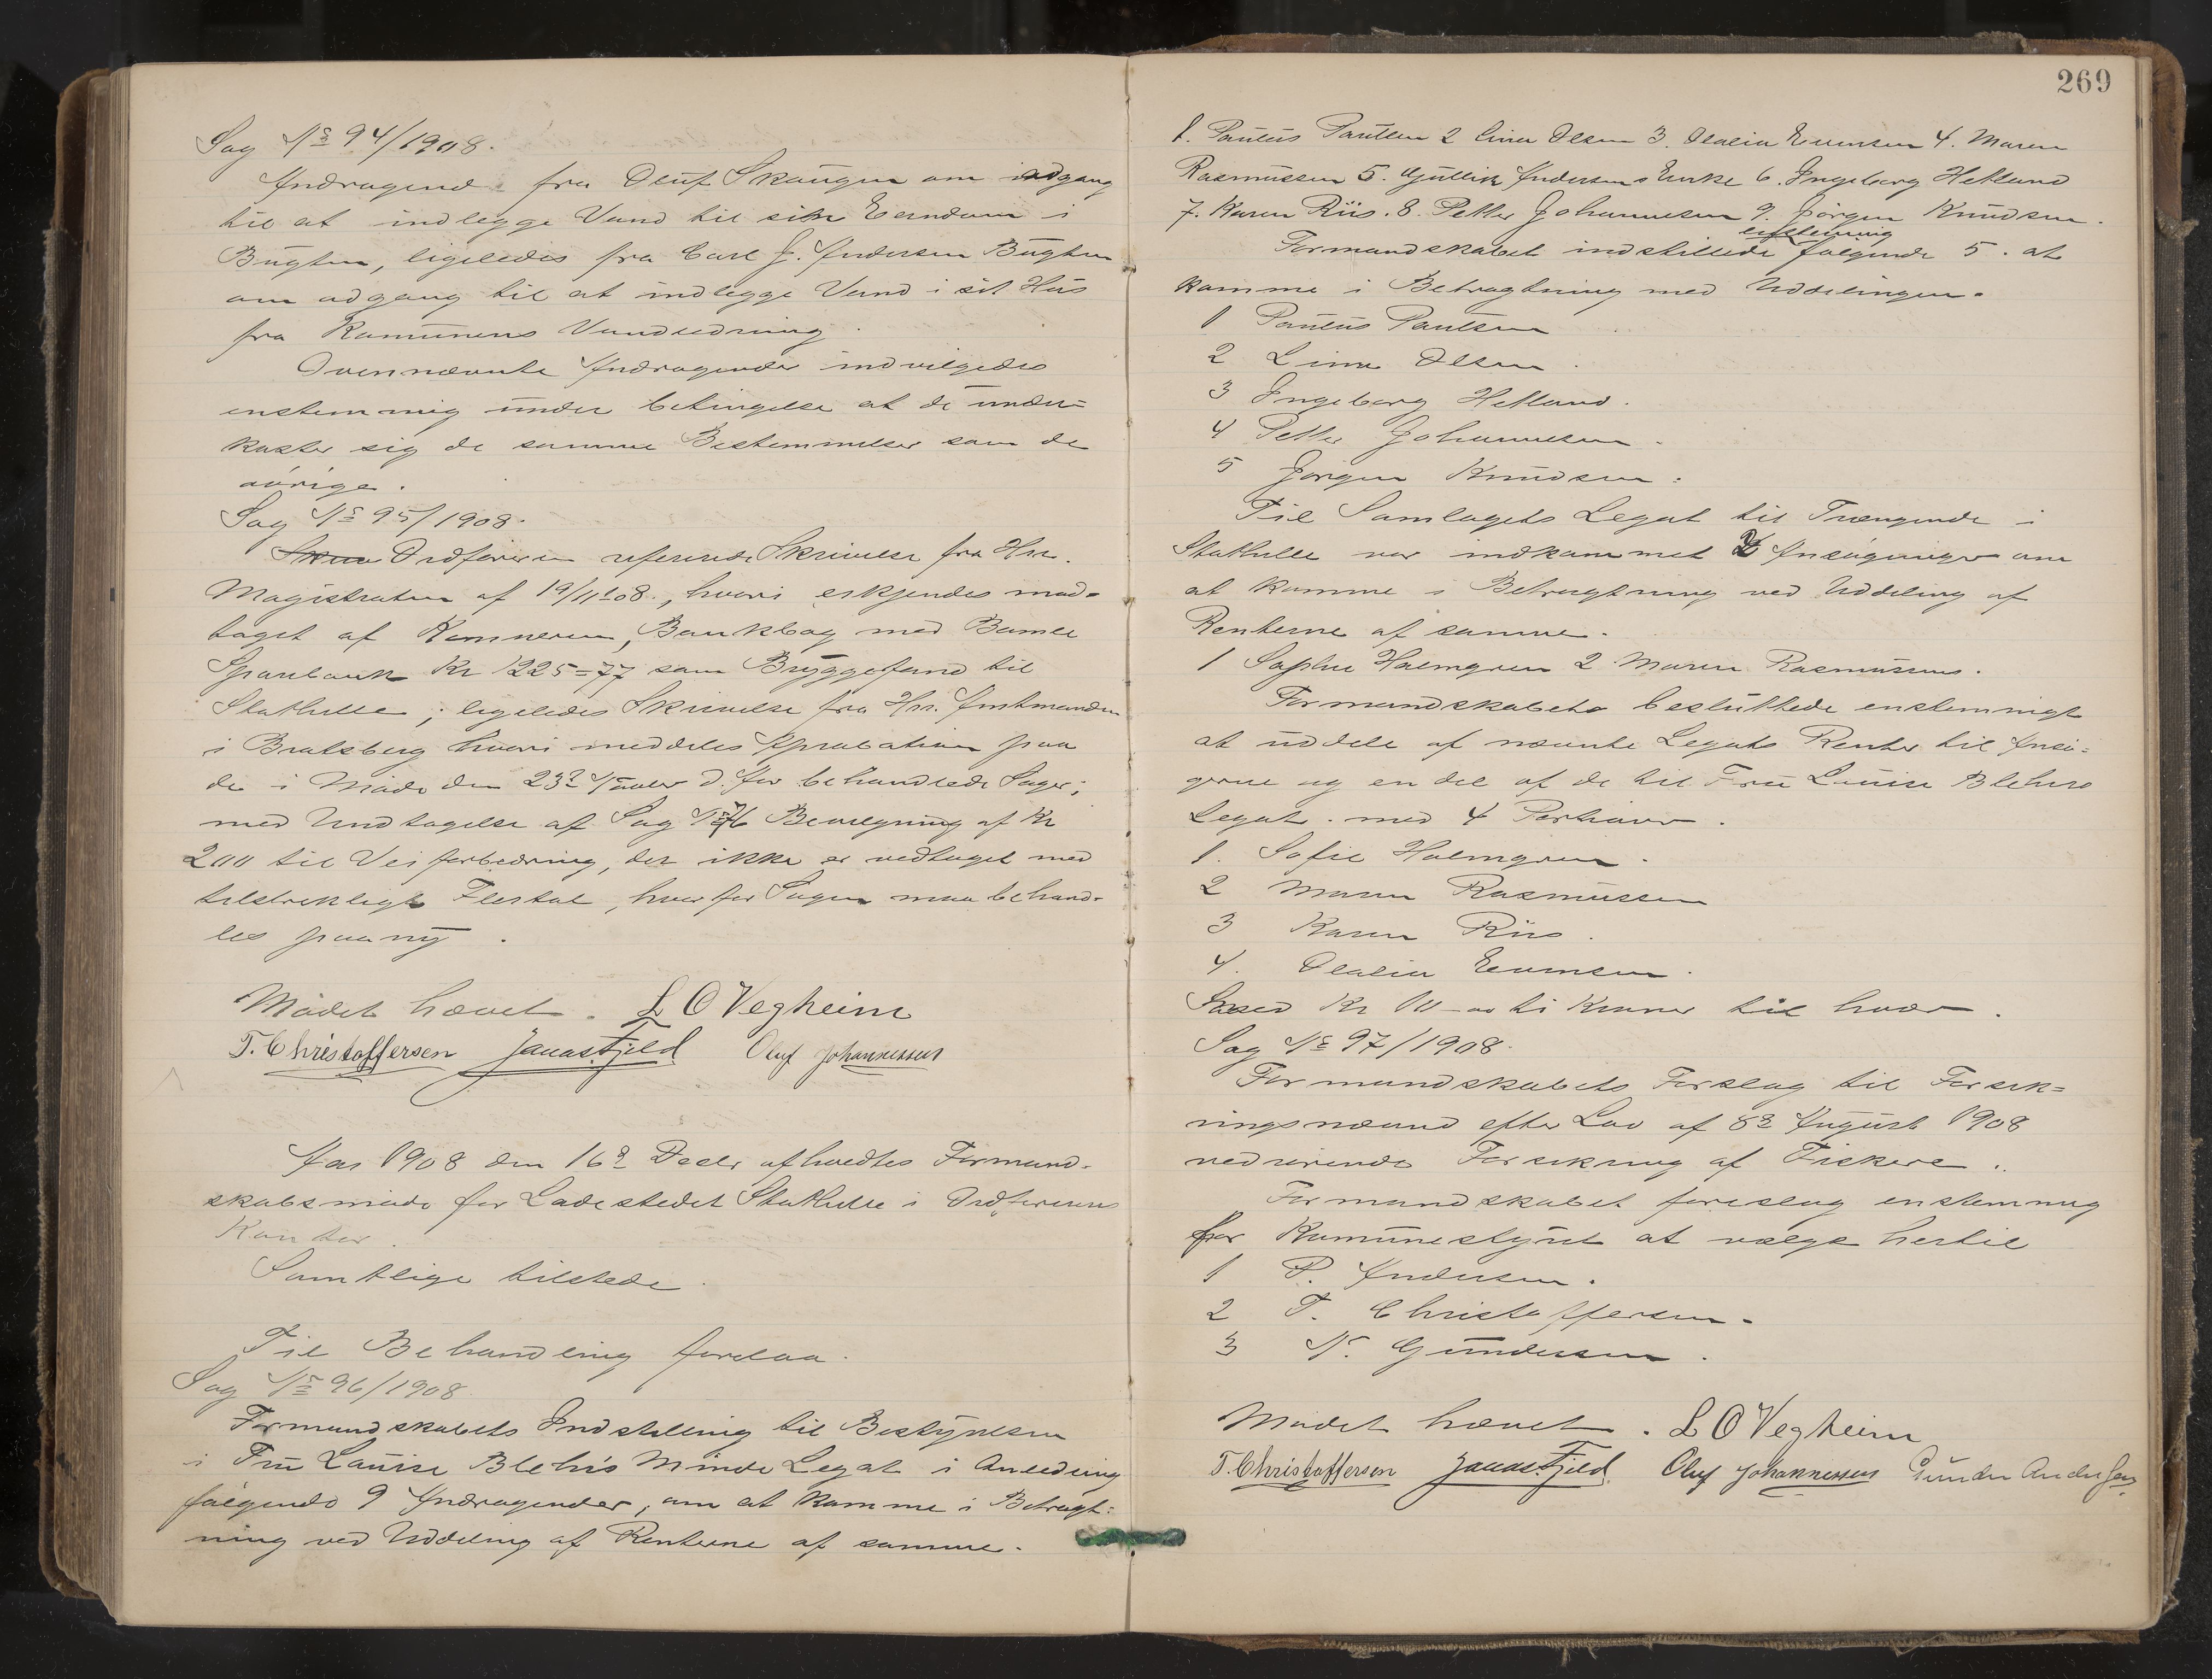 Sag No 94/1908.
Andragende fra Oluf Skougen om adgang
til at indlegge Vand til sin Eiendom i
Bugten, ligeledes fra Carl J. Andersen Bugten
om adgang til at indlegge Vand i sit Hus
fra Komunens Vandledning.
Ovennævnte Andragender indvilgedes
enstemmig under betingelse at de under=
kaster sig de samme Bestemmelser som de
øvrige.
Sag No 95/1908.
Ordføreren refererede Skrivelse fra Hrr.
Magistraten af 19/11 08., hvori erkjendes mod-
taget af Kemneren, Bankbog med Bamle
Sparebank Kr 1225=77 som Bryggefond til
Stathelle; ligeledes Skrivelse fra Hrr. Amtmanden
i Bratsberg hvori meddeles Aprobation paa
de i Møde den 23d Novbr d. Aar behandlede Sager;
med Undtagelse af Sag No 76 Bevilgning af Kr
200 til Veiforbedring, der ikke er vedtaget med
tilstrekkligt Flertal, hvorfor Sagen maa behand-
les paany.
Mødet hævet. L O Vegheim
T. Christoffersen Jonas Fjeld Oluf Johannessen
Aar 1908 den 16d Decbr afholdtes Formand-
skabsmøde for Ladestedet Stathelle i Ordførerens
Kontor.
Samtlige tilstede.
Til Behandling forelaa.
Sag No 96/1908.
Formandskabets Indstilling til Bestyrelsen
i Fru Louise Blehrs Minde Legat i Anledning
følgende 9 Andragender, om at komme i Betragt=
ning ved Uddeling af Renterne af samme.
269
1. Paulus Paulsen 2 Lina Olsen 3. Olalia Evensen 4. Maren
Rasmussen 5. Gullik Andersens Enke 6. Ingeborg Hetland
7. Karen Riis. 8. Petter Johannesen 9. Jørgen Knudsen.
enstemmig
Formandskabet indstillede følgende 5. at
komme i Betragtning med Uddelingen.
1 Paulus Paulsen
2 Lina Olsen.
3 Ingeborg Hetland.
4 Petter Johannesen.
5 Jørgen Knudsen.
Til Samlagets Legat til Trængende i
Stathelle var indkommet 2 Ansøgninger om
at komme i Betragtning ved Uddeling af
Renterne af samme.
1 Sophie Holmgren 2 Maren Rasmussens.
Formandskabets besluttede enstemmigt
at uddele af nævnte Legats Renter til Ansø=
gerne og en del af de til Fru Louise Blehrs
Legat. med 4 Portioner.
1. Sofie Holmgren.
2 Maren Rasmussen
3 Karen Riis.
4. Olalia Evensen.
med Kr 10 - ti Kroner til hver.
Sag No 97/1908.
Formandskabets Forslag til Forsik=
ringsnævnd efter Lov af 8d August 1908
vedrørende Forsikring af Fiskere.
Formandskabet foreslog enstemmig
for Komunestyret at vælge hertil
1 P. Andersen.
2 T. Christoffersen.
3 N. Gundersen.
Mødet hævet. L O Vegheim
T. Christoffersen Jonas Fjeld Oluf Johannessen Gunder Andersen